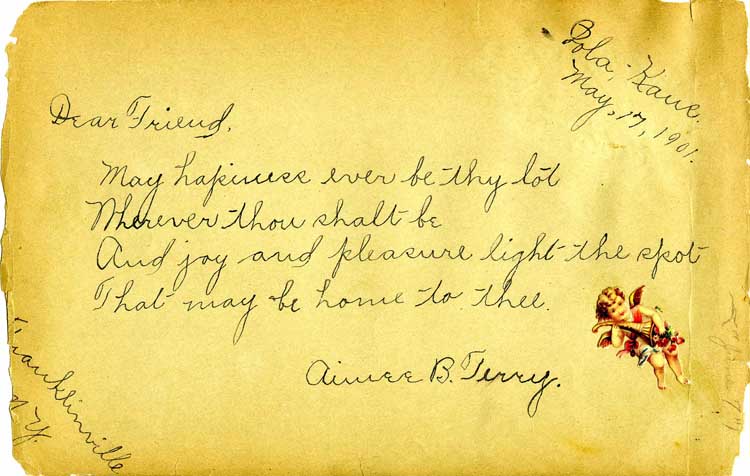 Iola, Kans.
May, 17, 1901.
Dear Friend,
May hapiness ever be thy lot
Wherever thou shalt be
And joy and pleasure light the spot
That may be home to thee.
Aimee B. Terry.
Franklinville
N.Y.